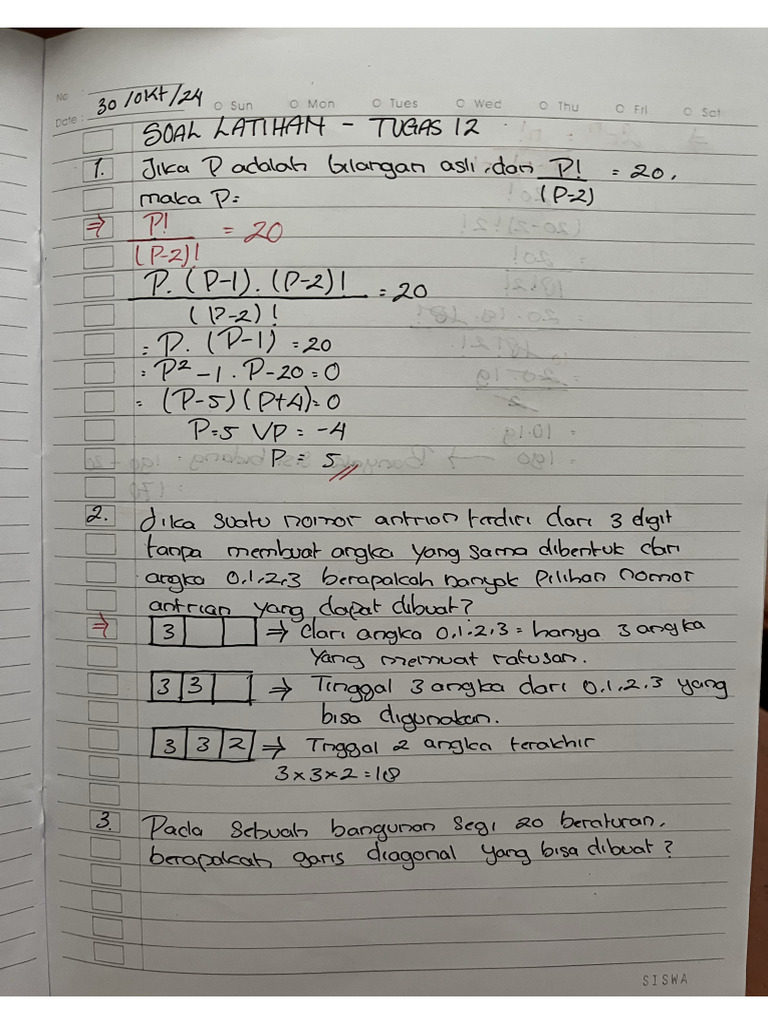 No
Date : 30/Okt/24 Sun Mon Tues Wed Thu Fri Sat
SOAL LATIHAN - TUGAS 12
1. Jika P adalah bilangan asli, dan P!/(P-2) = 20,
maka P=
⇒ P!/(P-2)! = 20
P. (P-1). (P-2)!/(P-2)! = 20
= P. (P-1) = 20
= P² - 1 . P - 20 = 0
= (P-5) (P+4) = 0
P=5 VP = -4
P = 5
2. Jika suatu nomor antrian terdiri dari 3 digit
tanpa membuat angka yang sama dibentuk dari
angka 0,1,2,3 berapakah banyak pilihan nomor
antrian yang dapat dibuat?
⇒ 3 ⇒ dari angka 0,1,2,3 = hanya 3 angka
yang memuat ratusan.
3 3 ⇒ Tinggal 3 angka dari 0,1,2,3 yang
bisa digunakan.
3 3 2 ⇒ Tnggal 2 angka terakhir
3 x 3 x 2 = 18
3. Pada sebuah bangunan segi 20 beraturan,
berapakah garis diagonal yang bisa dibuat?
SISWA